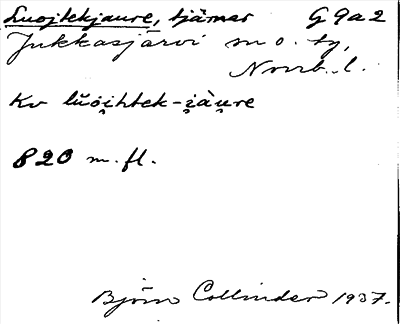 Luojtekjaure, tjärnar G 9a2
Jukkasjärvi sn o. ty,
Norrb. l.
Kv lŭǒi̯htek-i̯àu̯re
820 m. fl.
Björn Collinder 1937.